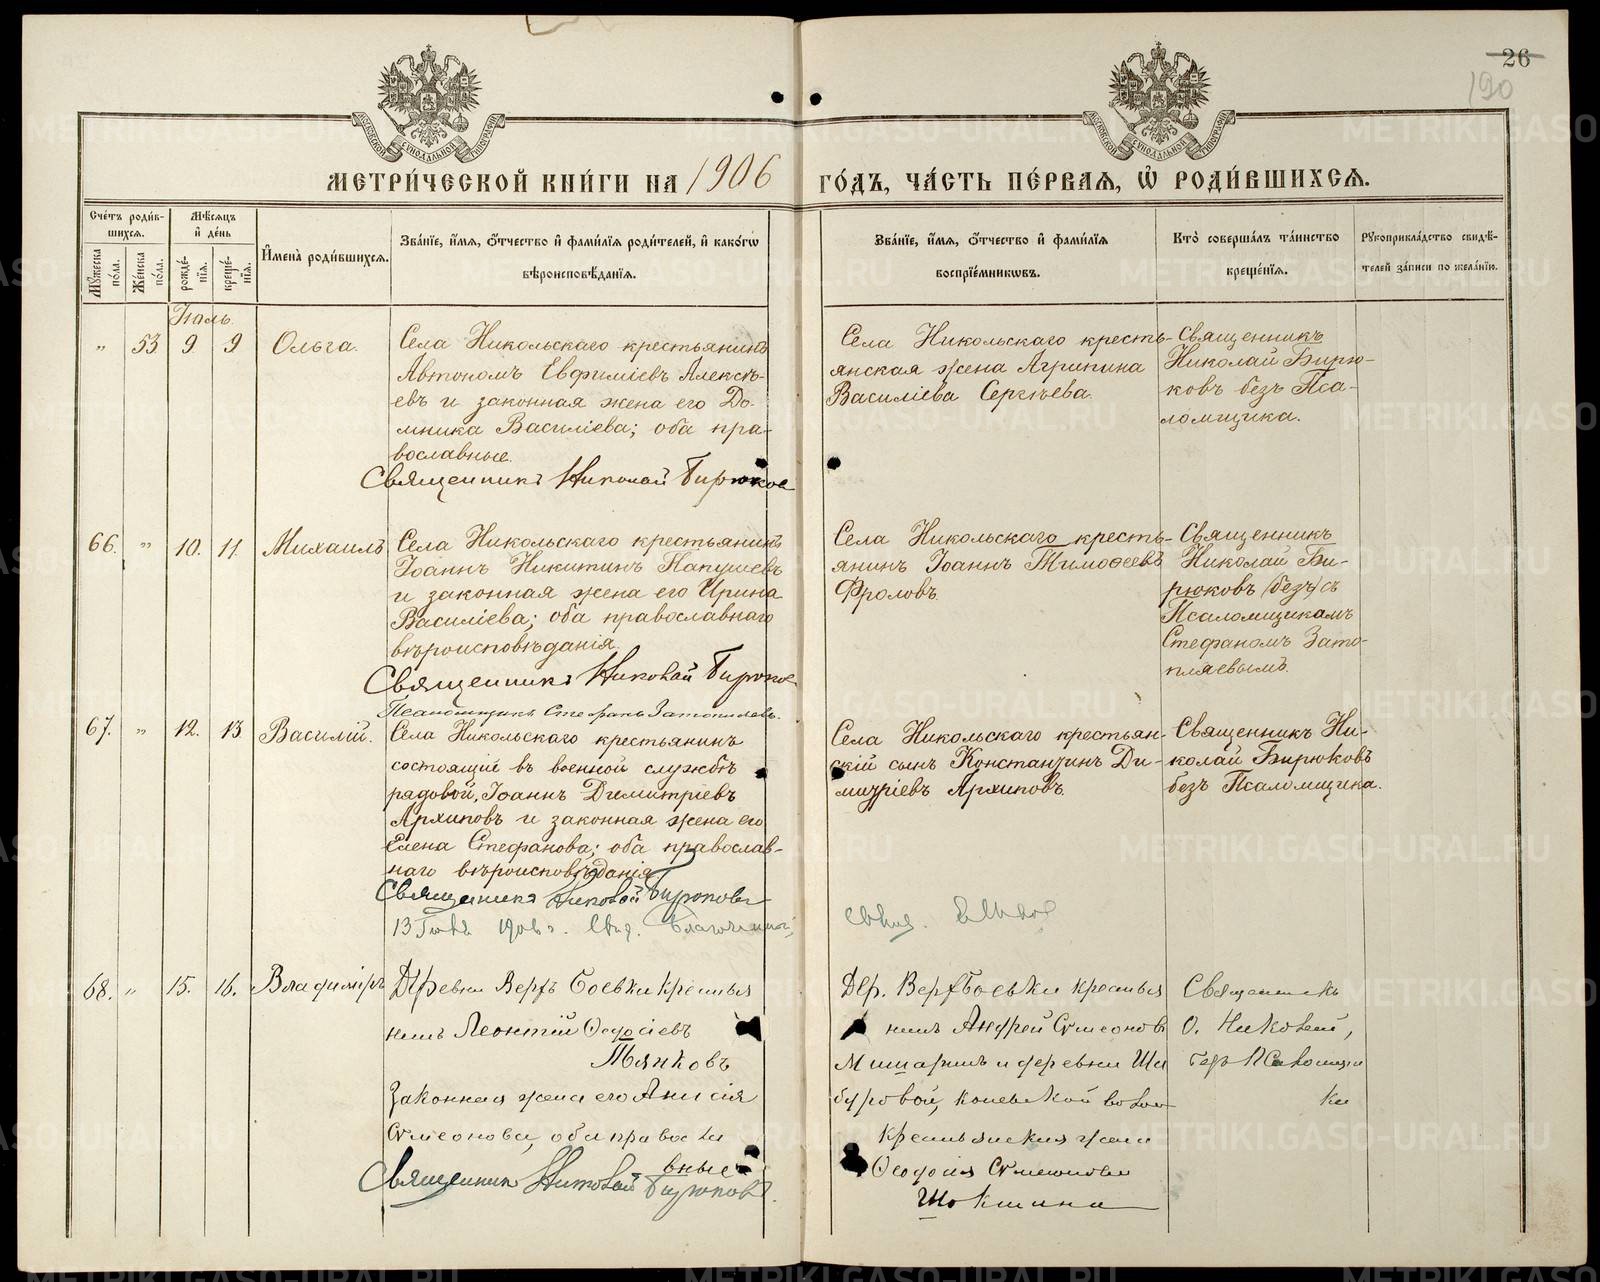 26
190
МОСКОВСКОЙ СУНОДАЛЬНОЙ ТИПОГРАФІИ
МОСКОВСКОЙ СУНОДАЛЬНОЙ ТИПОГРАФІИ
МЕТРИ́ЧЕСКОЙ КНИ́ГИ НА 1906 ГО́ДЪ, ЧА́СТЬ ПЕ́РВАѦ, Ѽ РОДИ́ВШИХСѦ.
Сче́тъ роди́в-
шихсѧ.
Мꙋ́жеска по́ла.
Же́нска по́ла.
Мѣ́сѧцъ
и҆ де́нь
рожде́-
нїѧ.
креще́-
нїѧ.
И҆мена̀ роди́вшихсѧ.
Зва́нїе, и҆́мѧ, ѻ҆́тчество и҆ фами́лїѧ роди́телей, и҆ како́гѡ
вѣроисповѣ́данїѧ.
Зва́нїе, и҆́мѧ, ѻ҆́тчество и҆ фами́лїѧ
воспрїе́мникѡвъ.
Кто̀ соверша́лъ та́инство
креще́нїѧ.
Рꙋкоприкла́дство свидѣ́-
телей за́писи по жела́нїю.
Іюль
„ 53 9 9 Ольга.
Села Никольскаго крестьянинъ
Автономъ Евфиміевъ Алексѣ-
евъ и законная жена его До-
мника Василіева; оба пра-
вославные.
Священникъ Николай Бирюков
Села Никольскаго кресть-
янская жена Агрипина
Василіева Сергѣева.
Священникъ
Николай Бирю-
ковъ безъ Пса-
ломщика.
66. „ 10. 11. Михаилъ
Села Никольскаго крестьянинъ
Іоаннъ Никитинъ Папушевъ
и законная жена его Ирина
Василіева; оба православнаго
вѣроисповѣданія
Священникъ Николай Бирюков
Псаломщикъ Стефанъ Затопляевъ.
Села Никольскаго кресть-
янинъ Іоаннъ Тимоѳеевъ
Фроловъ.
Священникъ
Николай Би-
рюковъ (безъ) съ
Псаломщикамъ
Стефаномъ Зато-
пляевымъ.
67. „ 12. 13 Василій.
Села Никольскаго крестьянинъ
состоящій въ военной службѣ
рядовой, Іоаннъ Димитріевъ
Архиповъ и законная жена его
Елена Стефанова; оба православ-
наго вѣроисповѣданія
Священникъ Николай Бирюковъ
13 Іюля 1906 г. Свид. Благочинный,
Села Никольскаго крестьян-
скій сынъ Константинъ Ди-
митріевъ Архиповъ.
Священникъ Ни-
колай Бирюковъ
безъ Псаломщика.
68. „ 15. 16. Владиміръ
Деревни Верхъ Боевки крестья
нинъ Леонтій Ѳеодосіевъ
Тянковъ
Законная жена его Анисія
Симеонова, оба правосла
вные
Священникъ Николай Бирюковъ.
Дер. Верхбоевки крестья
нинъ Андрей Симеоновъ
Мишаринъ и деревни Ши
буровой, коневской волос
крестьянская жена
Ѳеодосія Симеонова
Шокшина
Священникъ
О. Николай,
безъ Псаломщи
ка